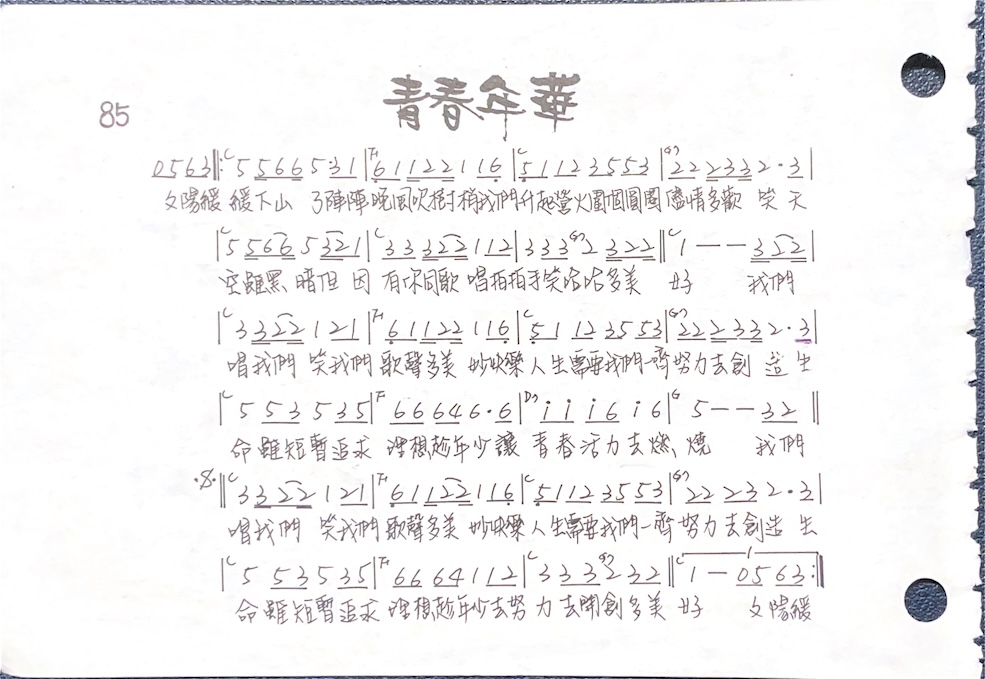 青春年華
85
0563‖:C 5 5566 5·31|F 6 1 1122 116|C 5 1123553|G7 222332·3|
夕陽緩 緩下山 了陣陣晚風吹樹梢我們升起營火圍個圓圈盡情多歡 笑 天
|C 5 5566 5321|C 33322112|333G7 2 322‖C 1 — — 322|
空雖黑 暗但 因 有你同歌 唱拍拍手笑哈哈多美 好 我們
|C 3322 121|F 61122116|C 51123553|G7 222332·3|
唱我們 笑我們 歌聲多美 妙快樂人生需要我們一齊努力去創 造 生
|C 553535|F 66646·6|D7 i i i 6 i 6|G 5 — — 32‖
命雖短暫追求 理想趁年少讓 青春活力去燃 燒 我們
·S·‖C 3322 121|F 61122116|C 51123553|G7 22232·3|
唱我們 笑我們 歌聲多美 妙快樂人生需要我們一齊努力去創造 生
|C 553535|F 6664112|C 333G7 2 32‖C 1 — 0563:‖
命雖短暫追求 理想趁年少去努力去開創多美 好 夕陽緩